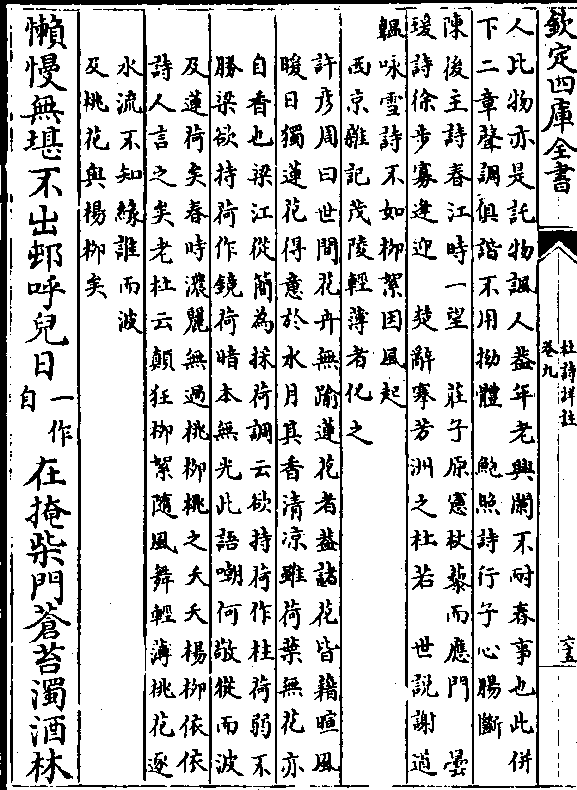 欽定四庫全書
杜詩詳註
卷九
六五
人比物亦是託物諷人蓋年老興闌不耐春事也此併
下二章聲調俱諧不用拗體 鮑照詩行子心腸斷
陳後主詩春江時一望 莊子原憲杖藜而應門 曇
瑗詩徐步寡逢迎 楚辭搴芳洲之杜若 世說謝道
韞咏雪詩不如柳絮因風起
西京雜記茂陵輕薄者化之
許彥周曰世間花卉無踰蓮花者蓋諸花皆藉暄風
暖日獨蓮花得意於水月其香清凉雖荷葉無花亦
自香也梁江從簡為採荷調云欲持荷作柱荷弱不
勝梁欲持荷作鏡荷暗本無光此語嘲何敬從而波
及蓮荷矣春時濃麗無過桃柳桃之夭夭楊柳依依
詩人言之矣老杜云顛狂柳絮隨風舞輕薄桃花逐
水流不知緣誰而波
及桃花與楊柳矣
懶慢無堪不出邨呼兒日一作自在掩柴門蒼苔濁酒林